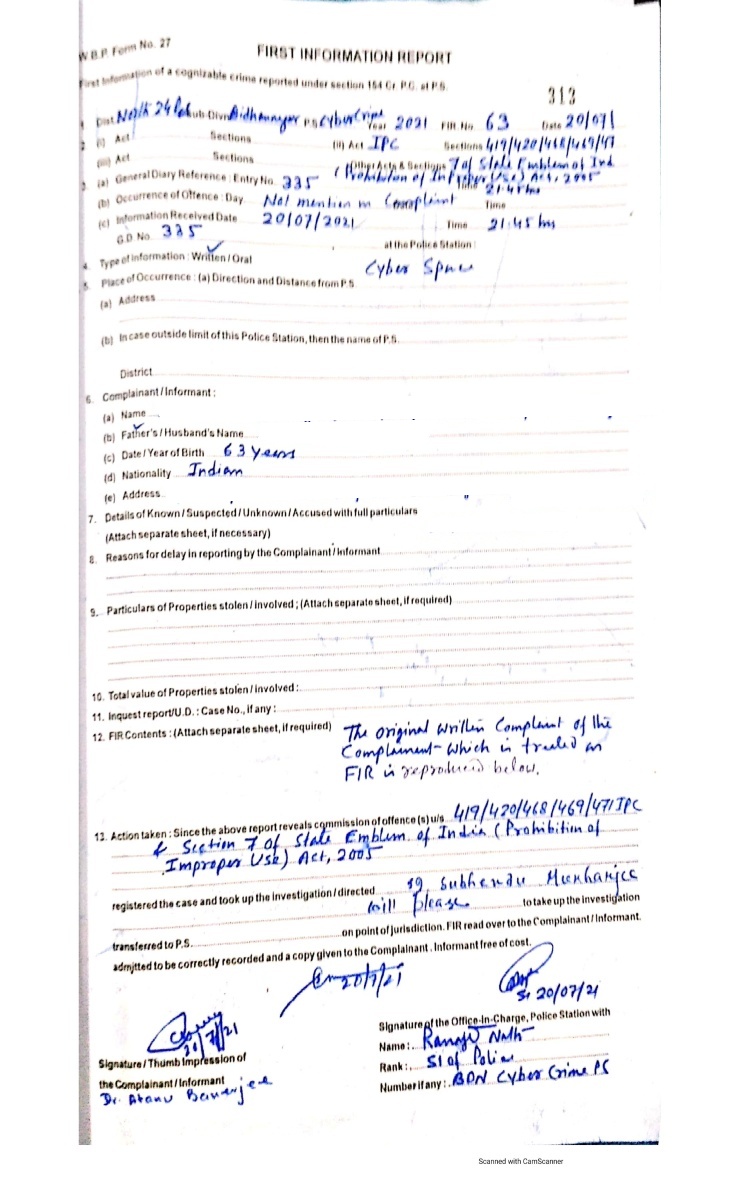 W.B.P. Form No. 27
FIRST INFORMATION REPORT
First Information of a cognizable crime reported under section 154 Cr. P.C. at P.S.
313
1. Dist. North 24 Sub-Divn Bidhannagar P.S. Cyber Crime Year 2021 FIR No. 63 Date 20/07/
2. (i) Act Sections (ii) Act IPC Sections 419/420/468/469/471
(iii) Act Sections (Other Acts & Sections 7 of State Emblem of Ind
(Prohibition of Improper Use) Act, 2005
3. (a) General Diary Reference : Entry No. 335 Time 21:45 hrs
(b) Occurrence of Offence : Day Not mention in Complaint Time
(c) Information Received Date 20/07/2021 Time 21:45 hrs
G.D No. 335 at the Police Station :
4. Type of information : Written / Oral
5. Place of Occurrence : (a) Direction and Distance from P.S. Cyber Space
(a) Address
(b) In case outside limit of this Police Station, then the name of P.S.
District
6. Complainant / Informant :
(a) Name
(b) Father's / Husband's Name
(c) Date / Year of Birth 63 years
(d) Nationality Indian
(e) Address
7. Details of Known / Suspected / Unknown / Accused with full particulars
(Attach separate sheet, if necessary)
8. Reasons for delay in reporting by the Complainant / Informant
9. Particulars of Properties stolen / involved ; (Attach separate sheet, if required)
10. Total value of Properties stolen / involved :
11. Inquest report/U.D. : Case No., if any :
12. FIR Contents : (Attach separate sheet, if required) The original written Complaint of the
Complainant which is treated as
FIR is reproduced below.
13. Action taken : Since the above report reveals commission of offence (s) u/s 419/420/468/469/471 IPC
& Section 7 of State Emblem of India (Prohibition of
Improper Use) Act, 2005
registered the case and took up the investigation / directed SI Subhendu Mukharjee
will please to take up the investigation
transferred to P.S. on point of jurisdiction. FIR read over to the Complainant / Informant.
admitted to be correctly recorded and a copy given to the Complainant . Informant free of cost.
20/7/21
SI 20/07/21
20/7/21
Signature of the Office-In-Charge, Police Station with
Name : Ranajit Nath
Signature / Thumb Impression of
Rank : SI of Police
the Complainant / Informant
Number if any : BDN Cyber Crime PS
Dr. Atanu Banerjee
Scanned with CamScanner